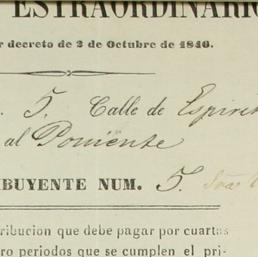 ESTRAORDINARIO
r decreto de 2 de Octubre de 1846.
. 5. Calle de Espirit
al Poniente
IBUYENTE NUM. 5.
ribucion que debe pagar por cuartas
ro periodos que se cumplen el pri-